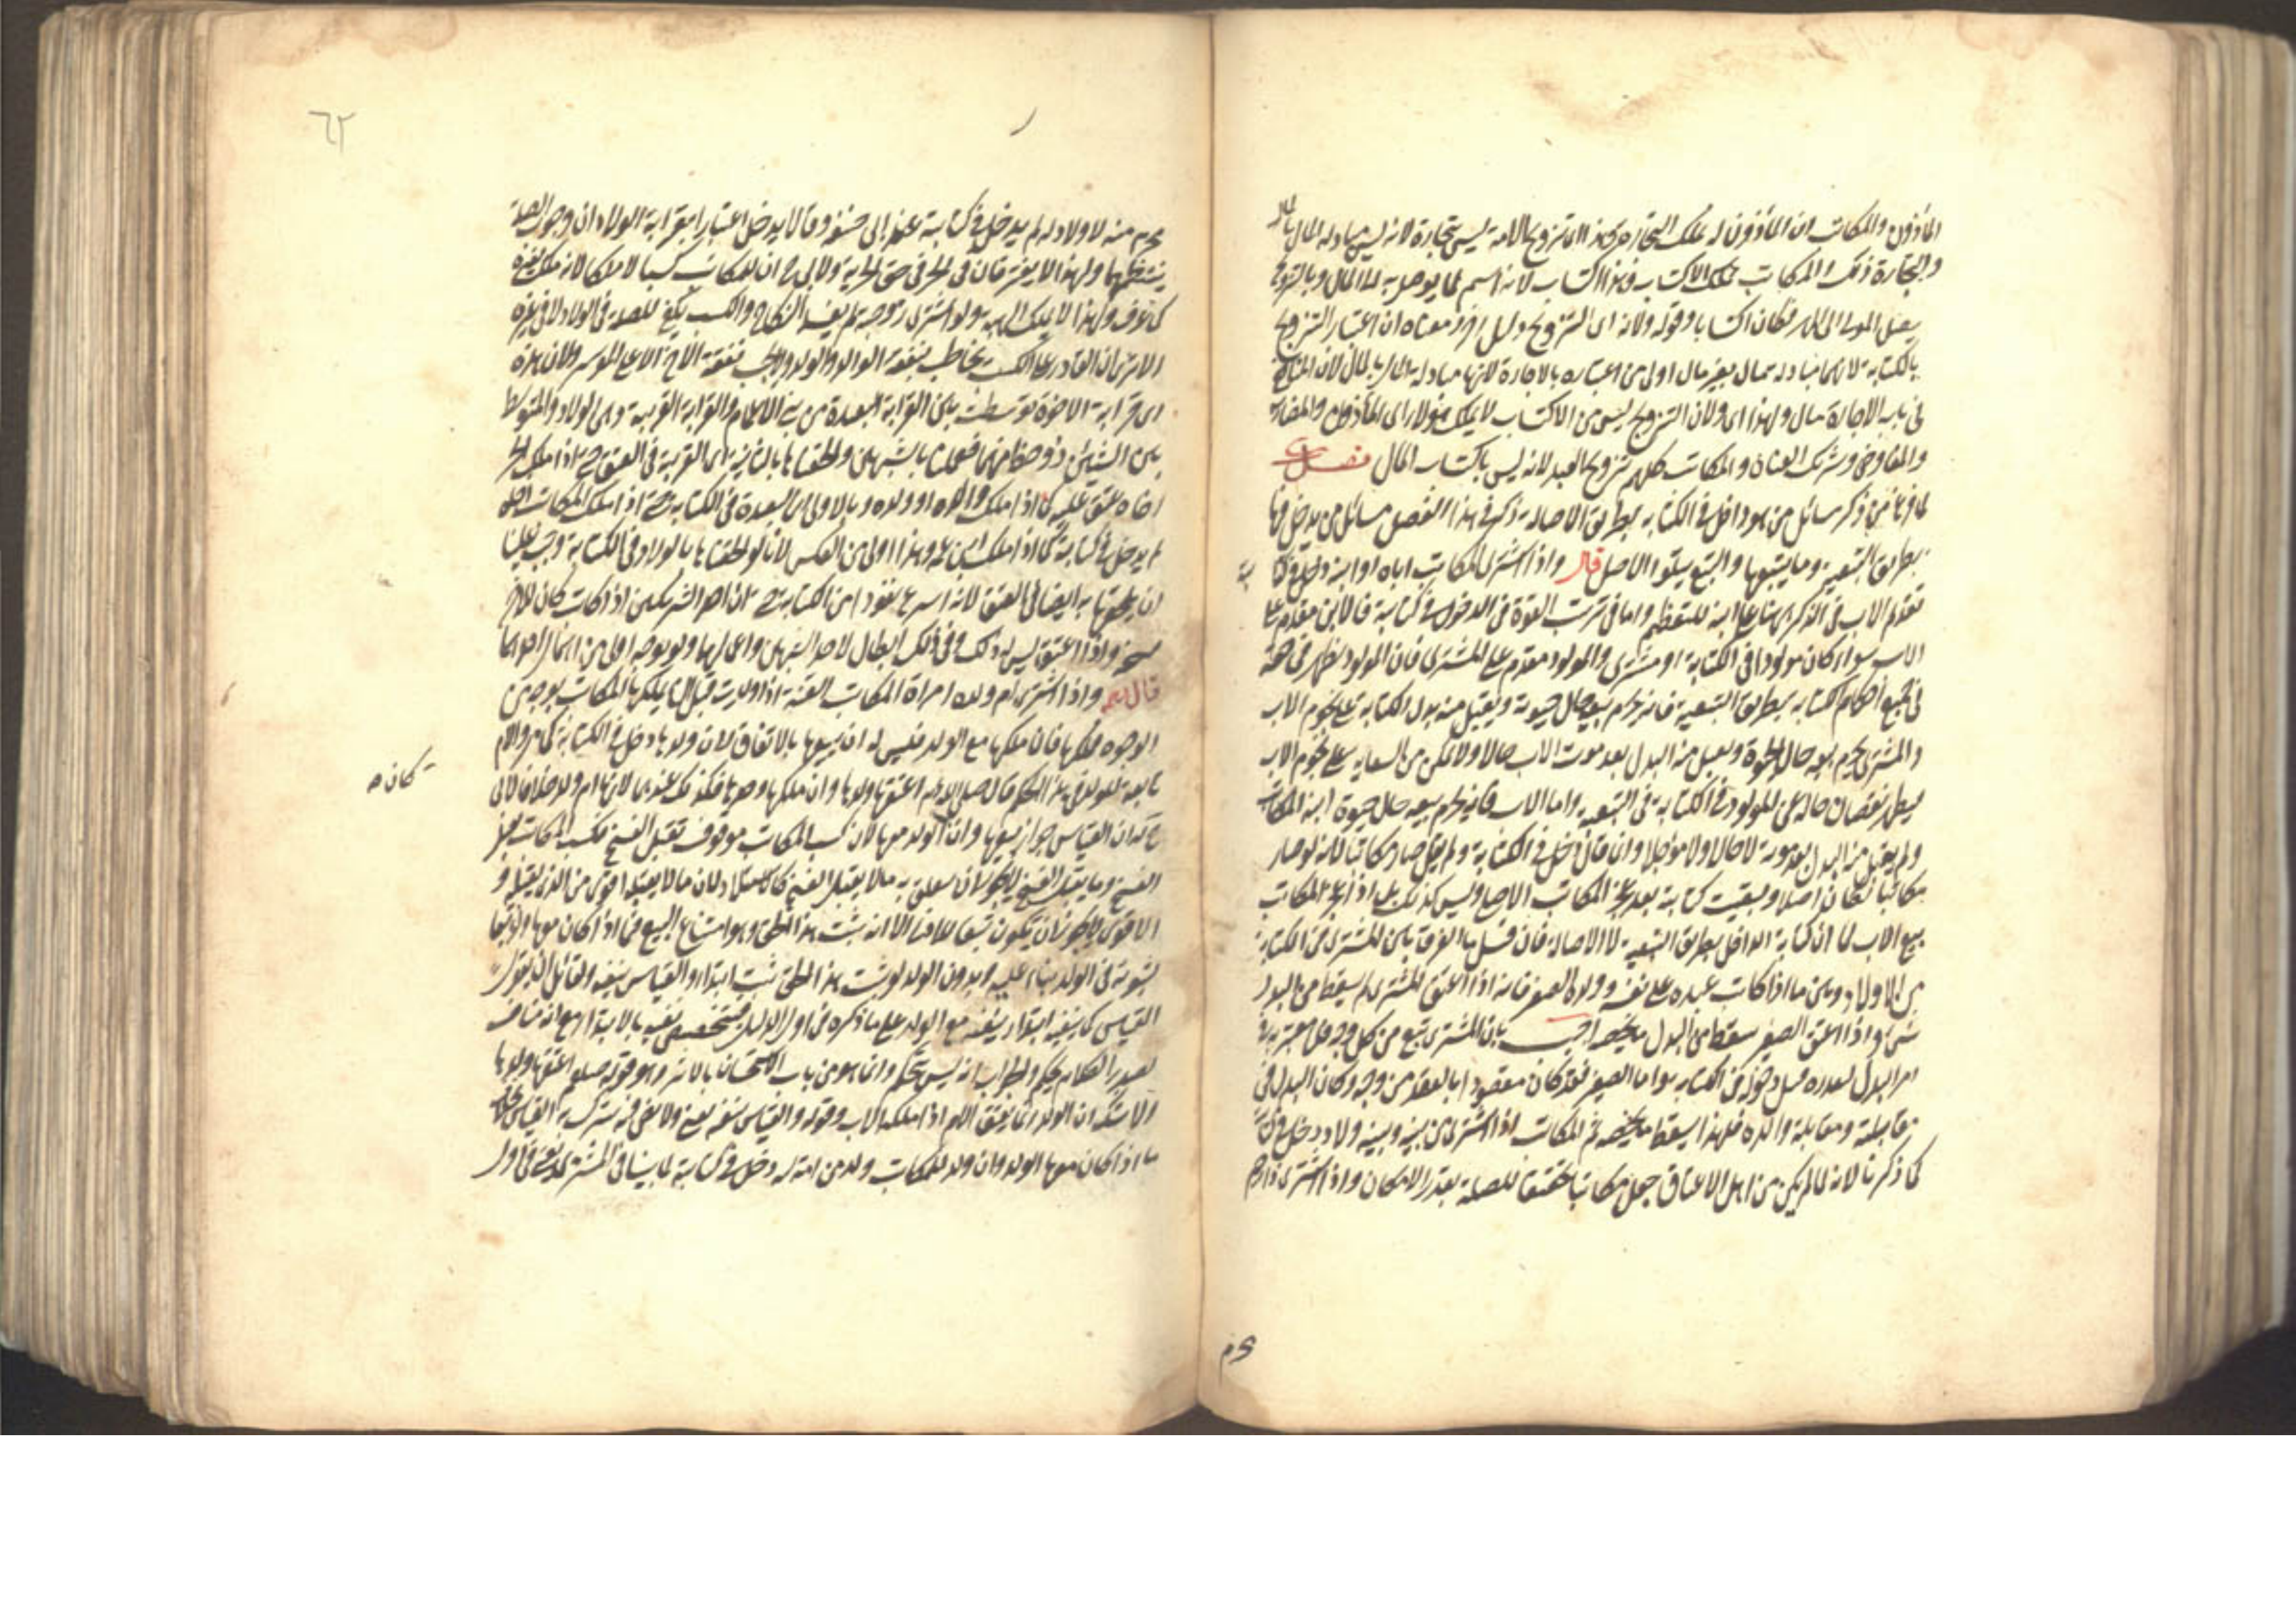 المأذون والمكاتب ان المأذون له يملك التجارة وهذا اى تزويج الامة ليس بتجارة لانه ليس مبادلة المال بالمال
والتجارة ذلك والمكاتب يملك الاكتساب وهذا اكتساب لانه اسم لما يوصل به الى المال وبالتزويج
يصل المولى الى المهر فكان اكتسابا وقوله ولانه اى التزويج دليل اخر معناه ان اعتبار التزويج
بالكتابة لانها مبادلة مال بغير مال اولى من اعتباره بالاجارة لانها مبادلة المال بالمال لان المنافع
فى باب الاجارة مال ولهذا اى ولان التزويج ليس من الاكتساب لا يملك هؤلاء اى المأذون والمضارب
والمفاوض وشريك العنان والمكاتب كلهم تزويج العبد لانه ليس باكتساب المال فصل
لما فرغ من ذكر مسائل من هو داخل فى الكتابة بطريق الاصالة ذكر فى هذا الفصل مسائل من يدخل فيها
بطريق التبعية وما يتبعها والتبع يتلو الاصل قال واذا اشترى المكاتب اباه او ابنه دخل فى كتا
بته
تقديم الاب فى الذكر هنا على ابنه للتعظيم واما فى ترتيب القوة فى الدخول فى كتابته فالابن مقدم على
الاب سواء كان مولودا فى الكتابة او مشترى والمولود مقدم على المشترى فان المولود يظهر فى حقه
فى جميع احكام الكتابة بطريق التبعية فانه يحرم بيعه حال حيوته ويقبل منه بدل الكتابة على نجوم الاب
والمشترى يحرم بيعه حال الحيوة ويقبل منه البدل بعد موت الاب حالا ولا يمكن من السعاية على نجوم الاب
فيظهر نقصان حاله عن المولود فى الكتابة فى التبعية واما الاب فانه يحرم بيعه حال حيوة ابنه المكاتب
ولم يقبل منه البدل بعد موته لا حالا ولا مؤجلا وانما قال دخل فى الكتابة ولم يقل صار مكاتبا لانه لو صار
مكاتبا لكان اصلا وبقيت كتابته بعد عجز المكاتب الاصلى وليس كذلك بل اذا عجز المكاتب
بيع الاب لما ان كتابة الداخل بطريق التبعية لا الاصالة فان قيل ما الفرق بين المشترى فى الكتابة
من الاولاد وبين ما اذا كاتب عبده على نفسه وولده الصغير فانه اذا اعتق المشترى لم يسقط من البدل
شئ واذا اعتق الصغير سقط من البدل ما يخصه اجيب بان المشترى تبع من كل وجه فلا معتبر به فى
امر البدل لتقرره قبل دخوله فى الكتابة واما الصغير فقد كان مقصودا بالعقد من وجه وكان البدل فى
مقابلته ومقابلة والده فلهذا يسقط ما يخصه ثم المكاتب اذا اشترى من بينه وبينه ولاد يدخل فى كتابته
كما ذكرنا لانه لما لم يكن من اهل الاعتاق جعل مكاتبا تحقيقا للصلة بقدر الامكان واذا اشترى ذا رحم
محرم منه لا ولاد له لم يدخل فى كتابته عند ابى حنيفة وقالا يدخل اعتبارا بقرابة الولاد ان وجوب الصلة
ينتظمهما ولهذا لا يفترقان فى الحر فى حق الحرية ولابى ح ان للمكاتب كسبا لا ملكا لانه ملك لغيره
كما عرف ولهذا لا يملك الهبة ولو اشترى زوجته لم يفسد النكاح والكسب يكفى للصلة فى الولاد لا فى غيره
الا ترى ان القادر على الكسب يخاطب بنفقة الوالد والولد ولا يجب نفقة الاخ الا على الموسر ولان هذه
اى قرابة الاخوة توسطت بين القرابة البعيدة من بنى الاعمام والقرابة القريبة وهى الولاد والمتوسط
بين الشيئين ذو حظ منهما فعملنا بالشبهين والحقناها بالثانية اى القريبة فى العتق حتى اذا ملك الحر
اخاه عتق عليه كما اذا ملك والده او ولده وبالاولى اى البعيدة فى الكتابة حتى اذا ملك المكاتب اخاه
لم يدخل فى كتابته كما اذا ملك ابن عمه وهذا اولى من العكس لانا لو الحقناها بالولاد فى الكتابة وجب علينا
ان نلحقها به ايضا فى العتق لانه اسرع نفوذا من الكتابة حتى ان احد الشريكين اذا كاتب كان للاخر
فسخه واذا اعتق ليس له ذلك وفى ذلك ابطال لاحد الشبهين واعمالهما ولو بوجه اولى من اهمال احدهما
قال واذا اشترى ام ولده امراة المكاتب القنة اذا ولدت قبل ان يملكها المكاتب بوجه من
الوجوه فملكها فان ملكها مع الولد فليس له ان يبيعها بالاتفاق لان ولدها دخل فى الكتابة كما مر والام
تابعة للولد فى هذا الحكم قال صلى الله عليه اعتقها ولدها وان ملكها وحدها فكذلك عندهما لانها ام ولد خلافا لابى
ح له ان القياس جواز بيعها وان كان الولد معها لان كسب المكاتب موقوف تقبل الفسخ فكسب المكاتب يقبل
كان ه
الفسخ وما يقبل الفسخ لا يجوز ان يتعلق به ما لا يقبل الفسخ كالاستيلاد لان ما لا يقبله اقوى من الذى يقبله و
الاقوى لا يجوز ان يكون تبعا للادنى الا انه يثبت هذا الحق وهو امتناع البيع فيما اذا كان معها ولد تبعا
لثبوته فى الولد بناء عليه وبدون الولد لو ثبت هذا الحق ثبت ابتداء والقياس ينفيه ولقائل ان يقول
القياس كما ينفيه ابتداء ينفيه مع الولد على ما ذكره فى اول الدليل فتخصيص نفيه بالابتداء مع انه مناقض
لصدر الكلام تحكم والجواب انه ليس بتحكم وانما هو من باب الاستحسان بالاثر وهو قوله صلعم اعتقها ولدها
ولا شك ان الولد انما يعتق الام اذا ملكه الاب وقوله والقياس ينفيه
ما اذا كان معها الولد وان ولد للمكاتب ولد من امة له دخل فى كتابته لما بينا فى المشترى يعنى فى اول